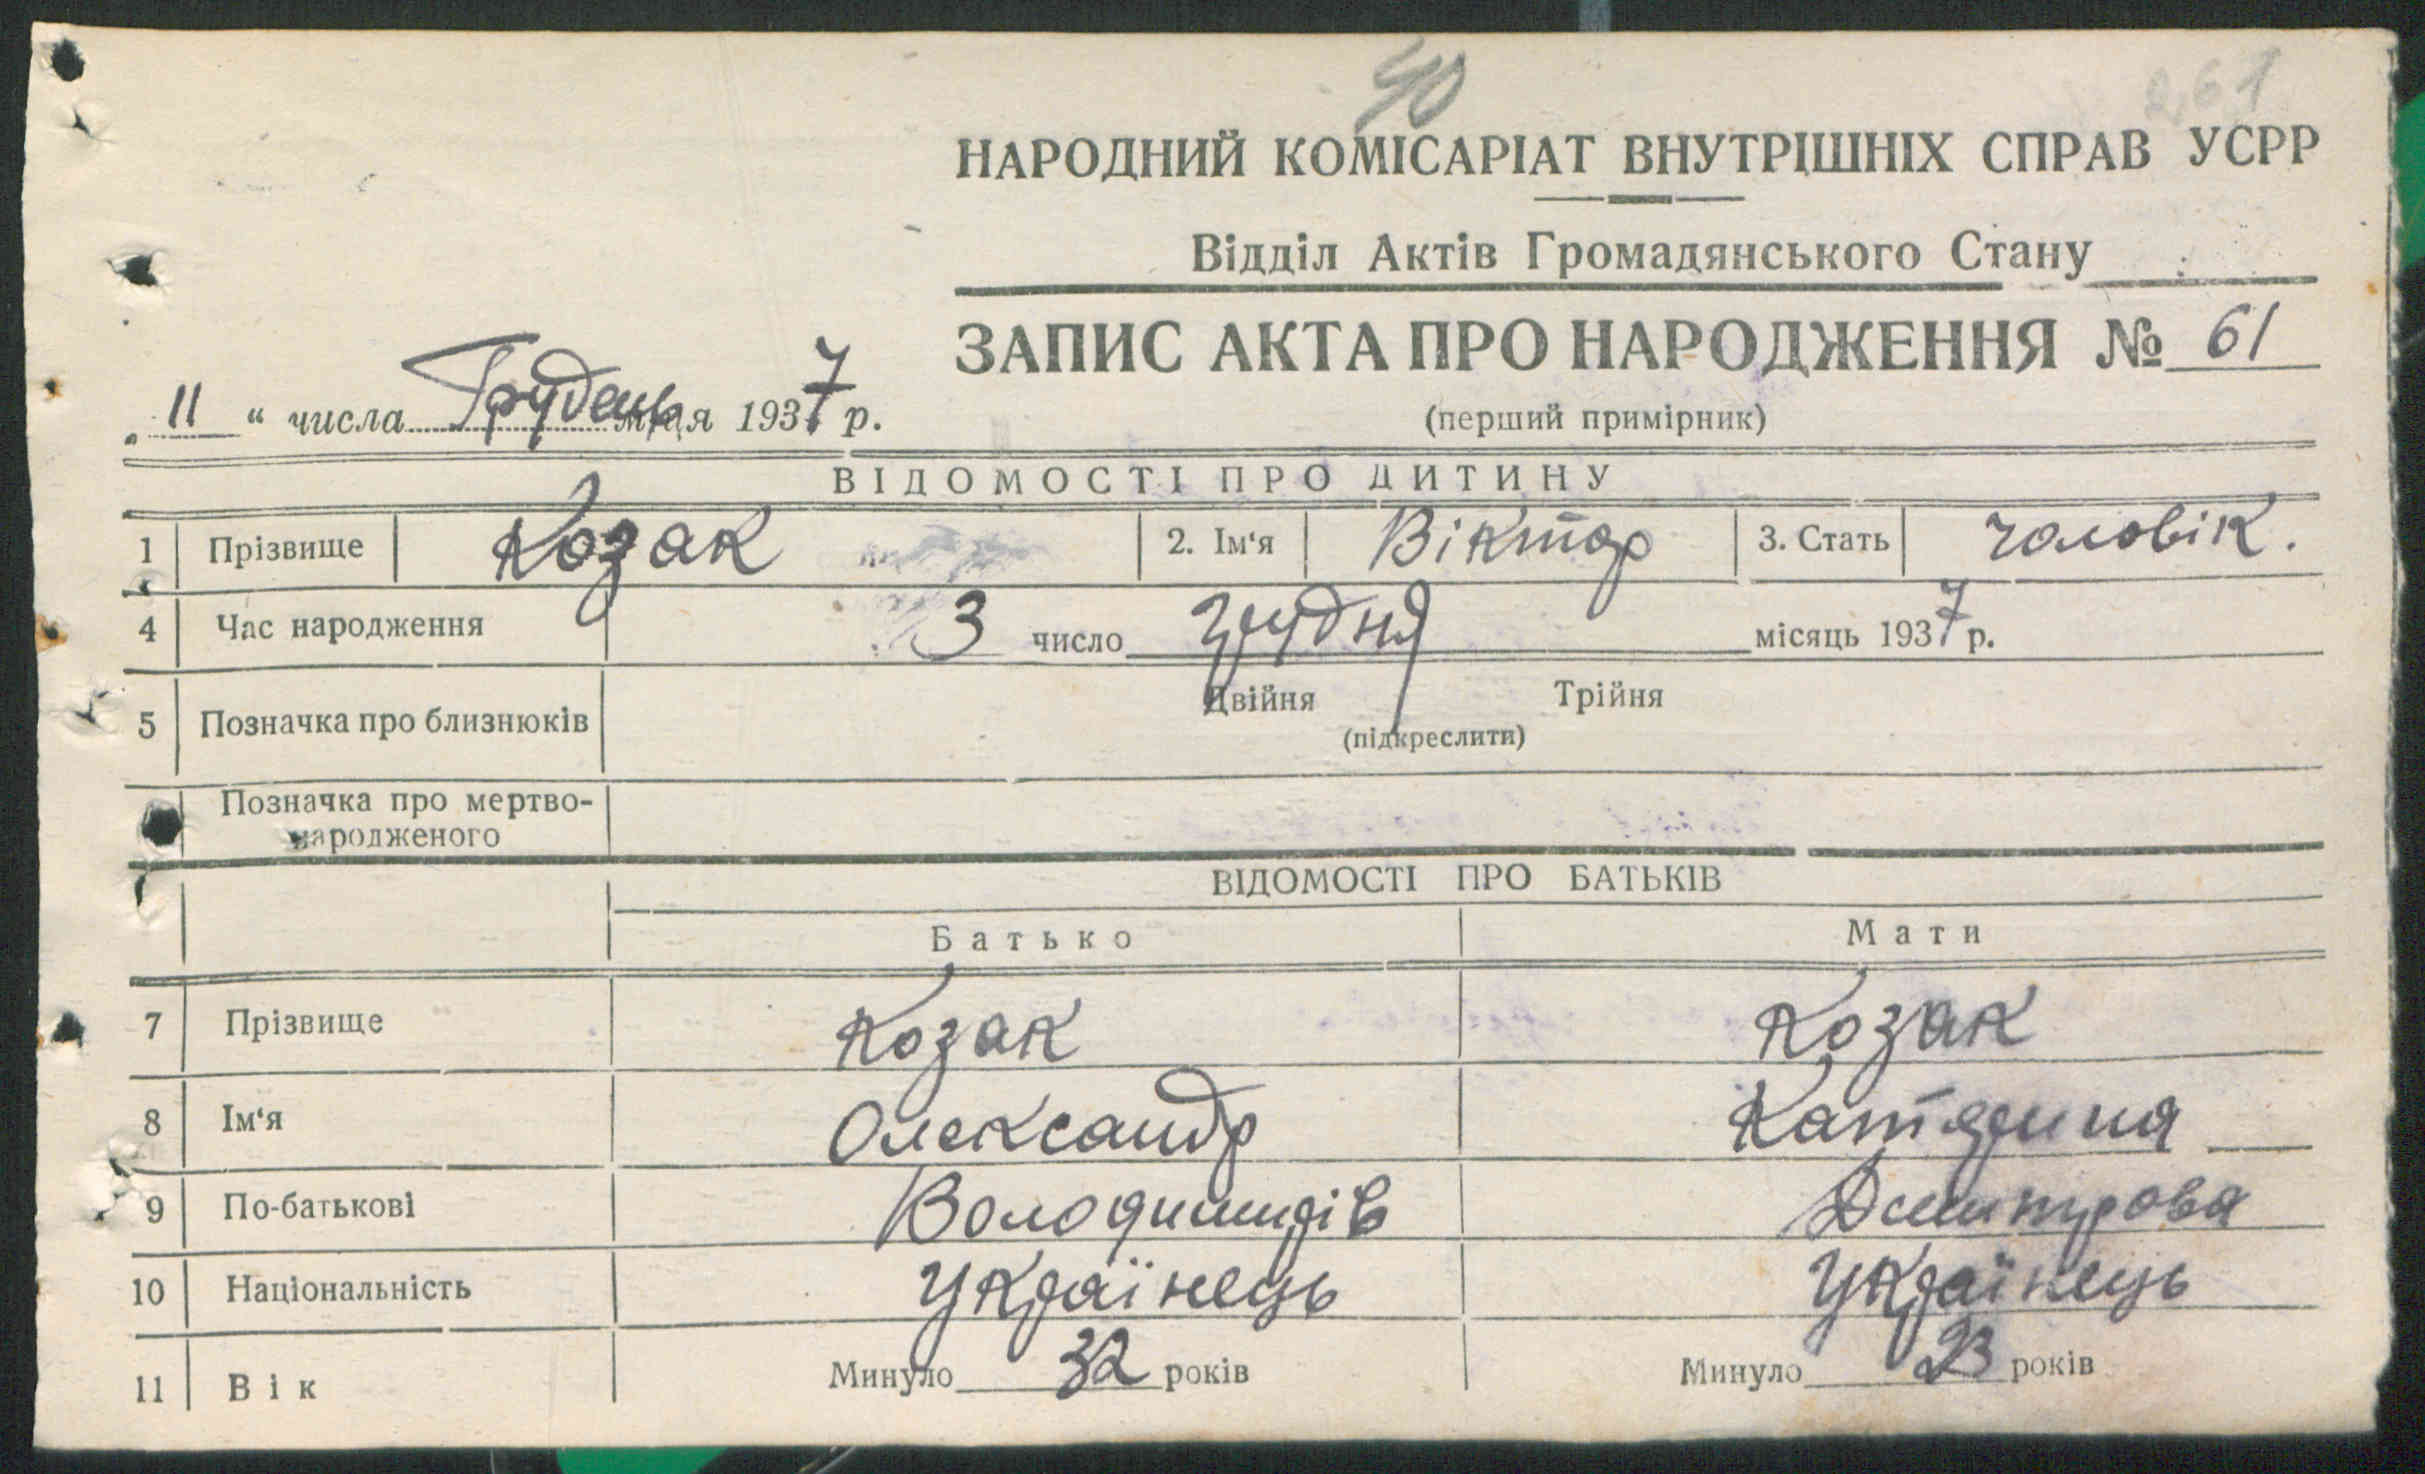 40
261
НАРОДНИЙ КОМІСАРІАТ ВНУТРІШНІХ СПРАВ УСРР
Відділ Актів Громадянського Стану
ЗАПИС АКТА ПРО НАРОДЖЕННЯ № 61
„ 11 “ числа Грудень м-ця 1937 р.
(перший примірник)
ВІДОМОСТІ ПРО ДИТИНУ
1 Прізвище Козак 2. Ім‘я Віктор 3. Стать чоловік.
4 Час народження 3 число грудня місяць 1937 р.
Двійня Трійня
5 Позначка про близнюків
(підкреслити)
Позначка про мертво-
народженого
ВІДОМОСТІ ПРО БАТЬКІВ
Батько Мати
7 Прізвище Козак Козак
8 Ім‘я Олександр Катярина
9 По-батькові Володимирів Дмитрова
10 Національність Українець Українець
11 Вік Минуло 32 років Минуло 23 років